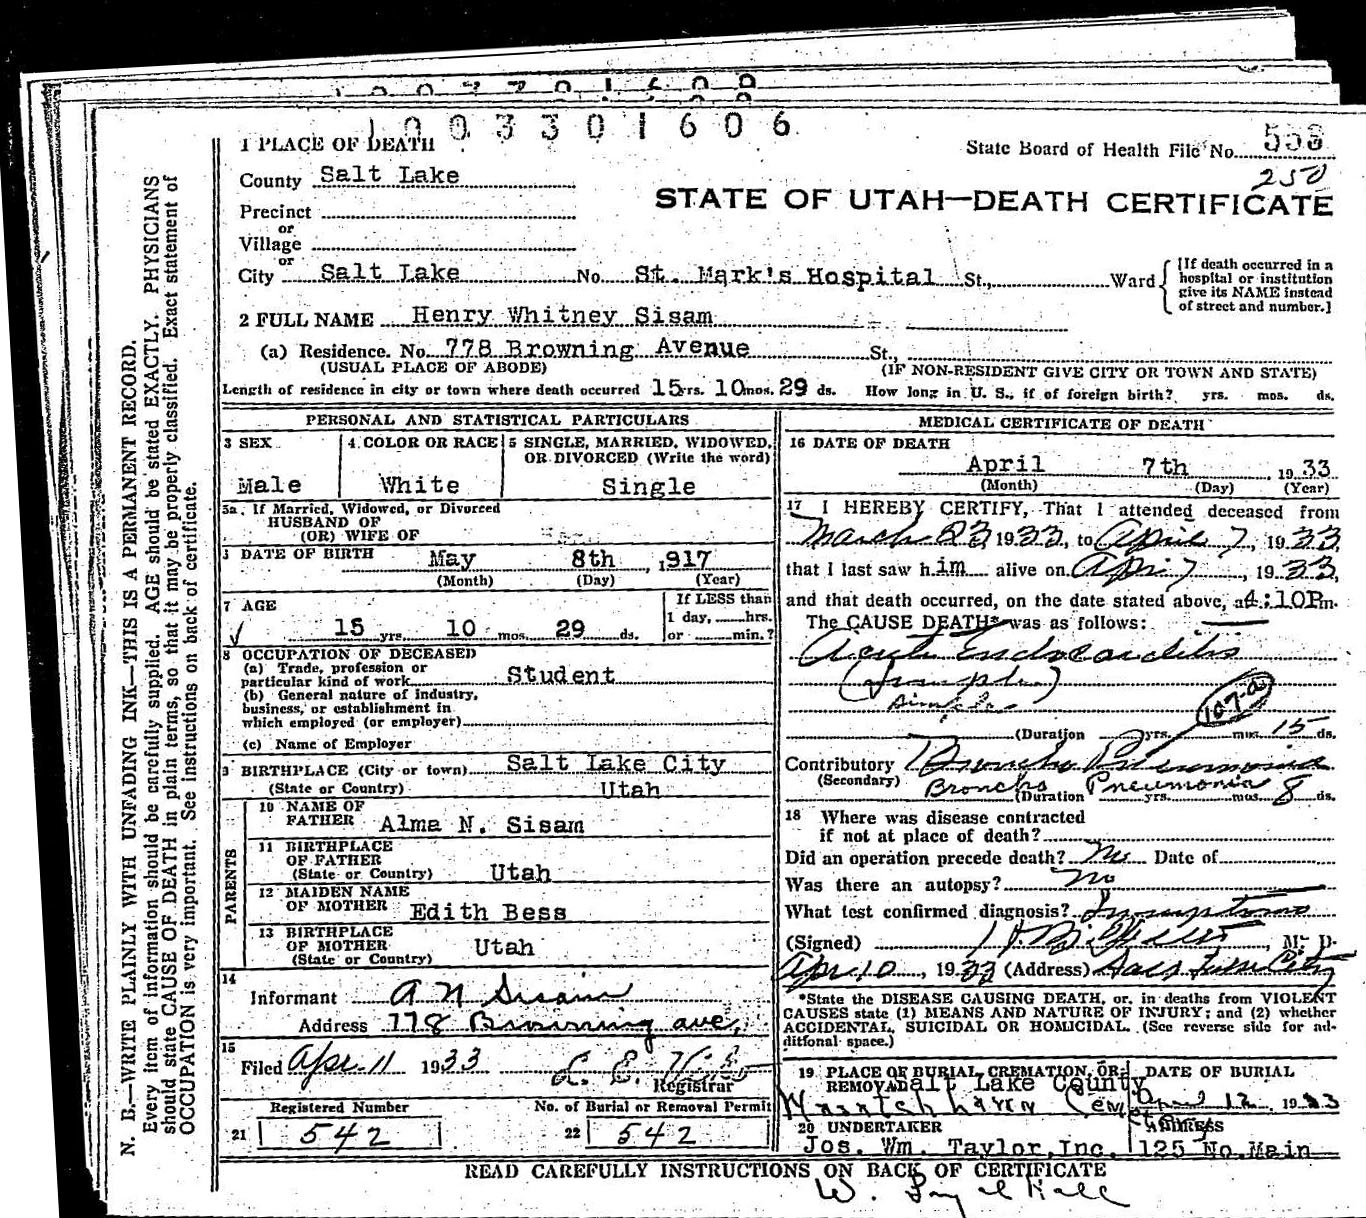 1003301606
1 PLACE OF DEATH
State Board of Health File No. 558
250
County Salt Lake
STATE OF UTAH—DEATH CERTIFICATE
Precinct
or
Village
or
City Salt Lake No. St. Mark's Hospital St., Ward
[If death occurred in a hospital or institution give its NAME instead of street and number.]
2 FULL NAME Henry Whitney Sisam
(a) Residence. No. 778 Browning Avenue St.,
(USUAL PLACE OF ABODE) (IF NON-RESIDENT GIVE CITY OR TOWN AND STATE)
Length of residence in city or town where death occurred 15 yrs. 10 mos. 29 ds. How long in U. S., if of foreign birth? yrs. mos. ds.
PERSONAL AND STATISTICAL PARTICULARS
3 SEX 4 COLOR OR RACE 5 SINGLE, MARRIED, WIDOWED, OR DIVORCED (Write the word)
Male White Single
5a. If Married, Widowed, or Divorced
HUSBAND OF
(OR) WIFE OF
DATE OF BIRTH May 8th, 1917
(Month) (Day) (Year)
7 AGE
15 yrs. 10 mos. 29 ds.
If LESS than
1 day, hrs.
or min.?
8 OCCUPATION OF DECEASED
(a) Trade, profession or
particular kind of work Student
(b) General nature of industry,
business, or establishment in
which employed (or employer)
(c) Name of Employer
9 BIRTHPLACE (City or town) Salt Lake City
(State or Country) Utah
PARENTS
10 NAME OF
FATHER Alma N. Sisam
11 BIRTHPLACE
OF FATHER
(State or Country) Utah
12 MAIDEN NAME
OF MOTHER Edith Bess
13 BIRTHPLACE
OF MOTHER Utah
(State or Country)
14
Informant A N Sisam
Address 778 Browning ave,
15
Filed Apr. 11 1933
Registrar
Registered Number No. of Burial or Removal Permit
21 542 22 542
MEDICAL CERTIFICATE OF DEATH
16 DATE OF DEATH
April 7th 1933
(Month) (Day) (Year)
17 I HEREBY CERTIFY, That I attended deceased from
March 23, 1933, to April 7, 1933,
that I last saw him alive on Apr 7, 1933,
and that death occurred, on the date stated above, at 4:10P m.
The CAUSE OF DEATH* was as follows:
Acute Endocarditis
(Simple)
Simple
107-a
(Duration yrs. mos. 15 ds.
Contributory Broncho Pneumonia
(Secondary) Broncho Pneumonia
(Duration yrs. mos. 8 ds.
18 Where was disease contracted
if not at place of death?
Did an operation precede death? No Date of
Was there an autopsy? no
What test confirmed diagnosis? Symptoms
(Signed) M. D.
Apr. 10, 1933 (Address) Salt Lake City
*State the DISEASE CAUSING DEATH, or, in deaths from VIOLENT
CAUSES state (1) MEANS AND NATURE OF INJURY; and (2) whether
ACCIDENTAL, SUICIDAL OR HOMICIDAL. (See reverse side for ad-
ditional space.)
19 PLACE OF BURIAL, CREMATION, OR DATE OF BURIAL
REMOVAL Salt Lake County
Wasatch Lawn Cemetery April 12 1933
20 UNDERTAKER ADDRESS
Jos. Wm. Taylor, Inc. 125 No. Main
READ CAREFULLY INSTRUCTIONS ON BACK OF CERTIFICATE
N. B.—WRITE PLAINLY WITH UNFADING INK—THIS IS A PERMANENT RECORD.
Every item of information should be carefully supplied. AGE should be stated EXACTLY. PHYSICIANS
should state CAUSE OF DEATH in plain terms, so that it may be properly classified. Exact statement of
OCCUPATION is very important. See instructions on back of certificate.